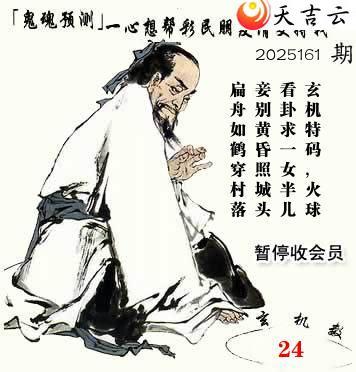 天吉云
「鬼魂预测」一心想帮彩民朋友
2025161 期
玄机特码，火球
看卦求一女半儿
妾别黄昏照城头
扁舟如鹤穿村落
暂停收会员
玄机数
24